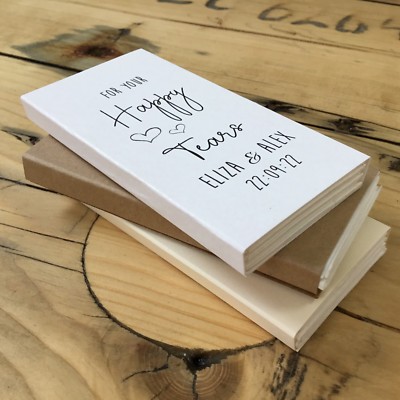 FOR YOUR
Happy
Tears
ELIZA & ALEX
22:09:22